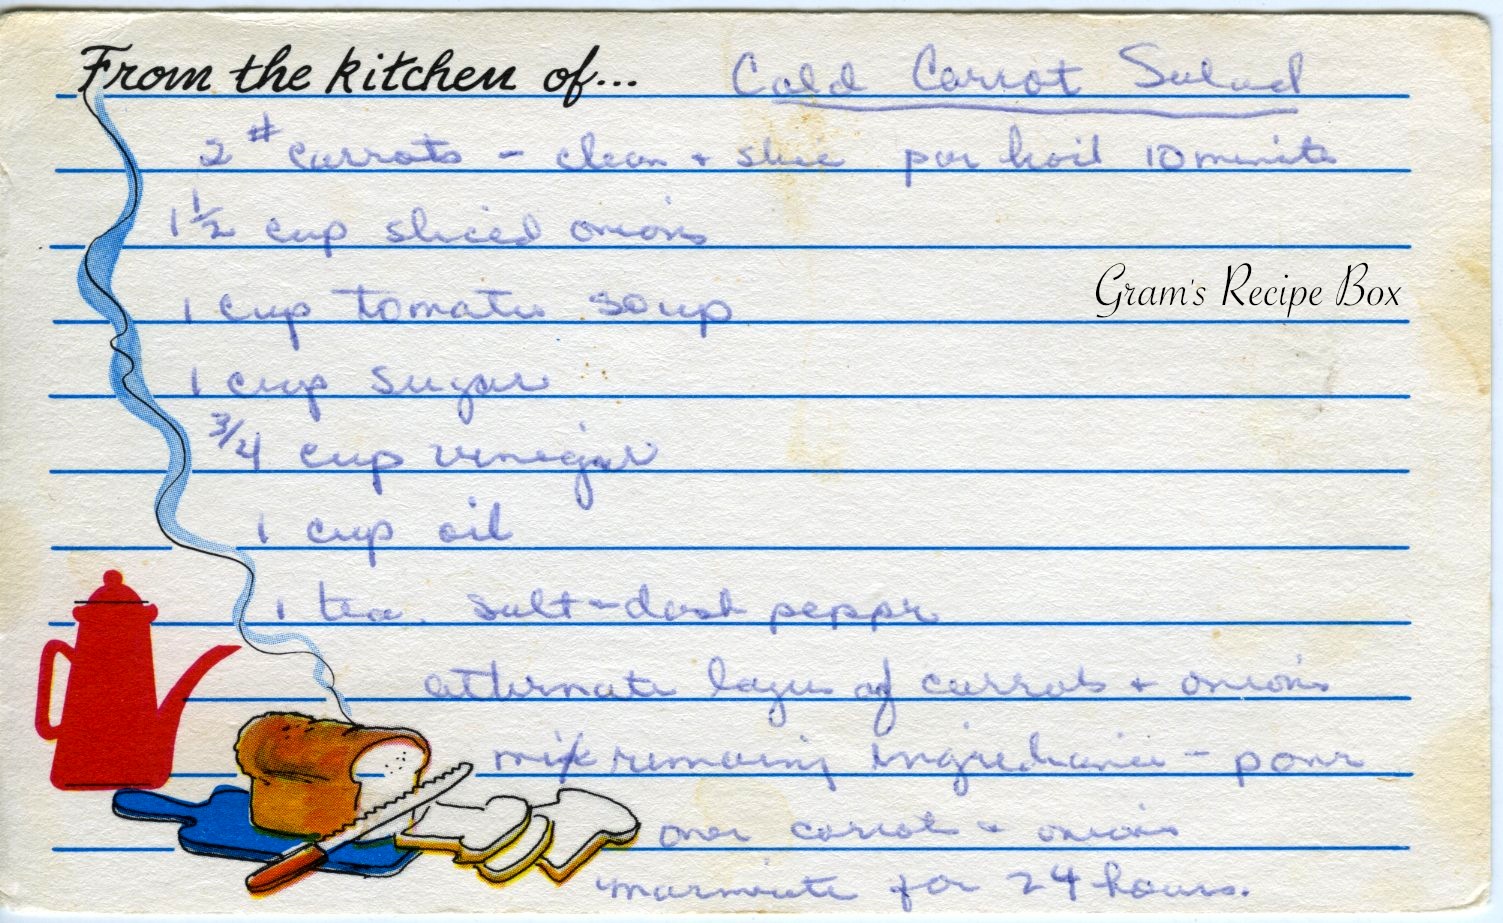 From the kitchen of... Cold Carrot Salad
2 # carrots - clean + slice par boil 10 minute
1 1/2 cup sliced onions
1 cup tomato soup
Gram's Recipe Box
1 cup sugar
3/4 cup vinegar
1 cup oil
1 tea. salt - dash peppr
alternate layers of carrots + onions
mix remaining ingrediance - pour
over carrot + onions
marinate for 24 hours.